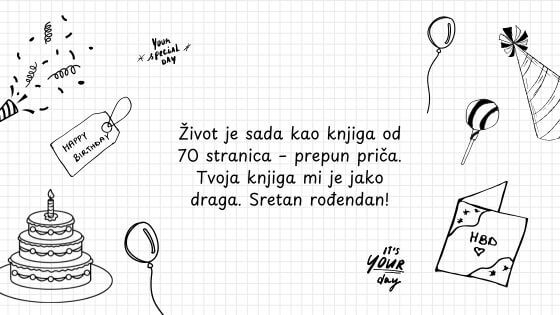 YOUR
SPECIAL
DAY
HAPPY
BIRTHDAY
Život je sada kao knjiga od
70 stranica – prepun priča.
Tvoja knjiga mi je jako
draga. Sretan rođendan!
HBD
IT'S
YOUR
day